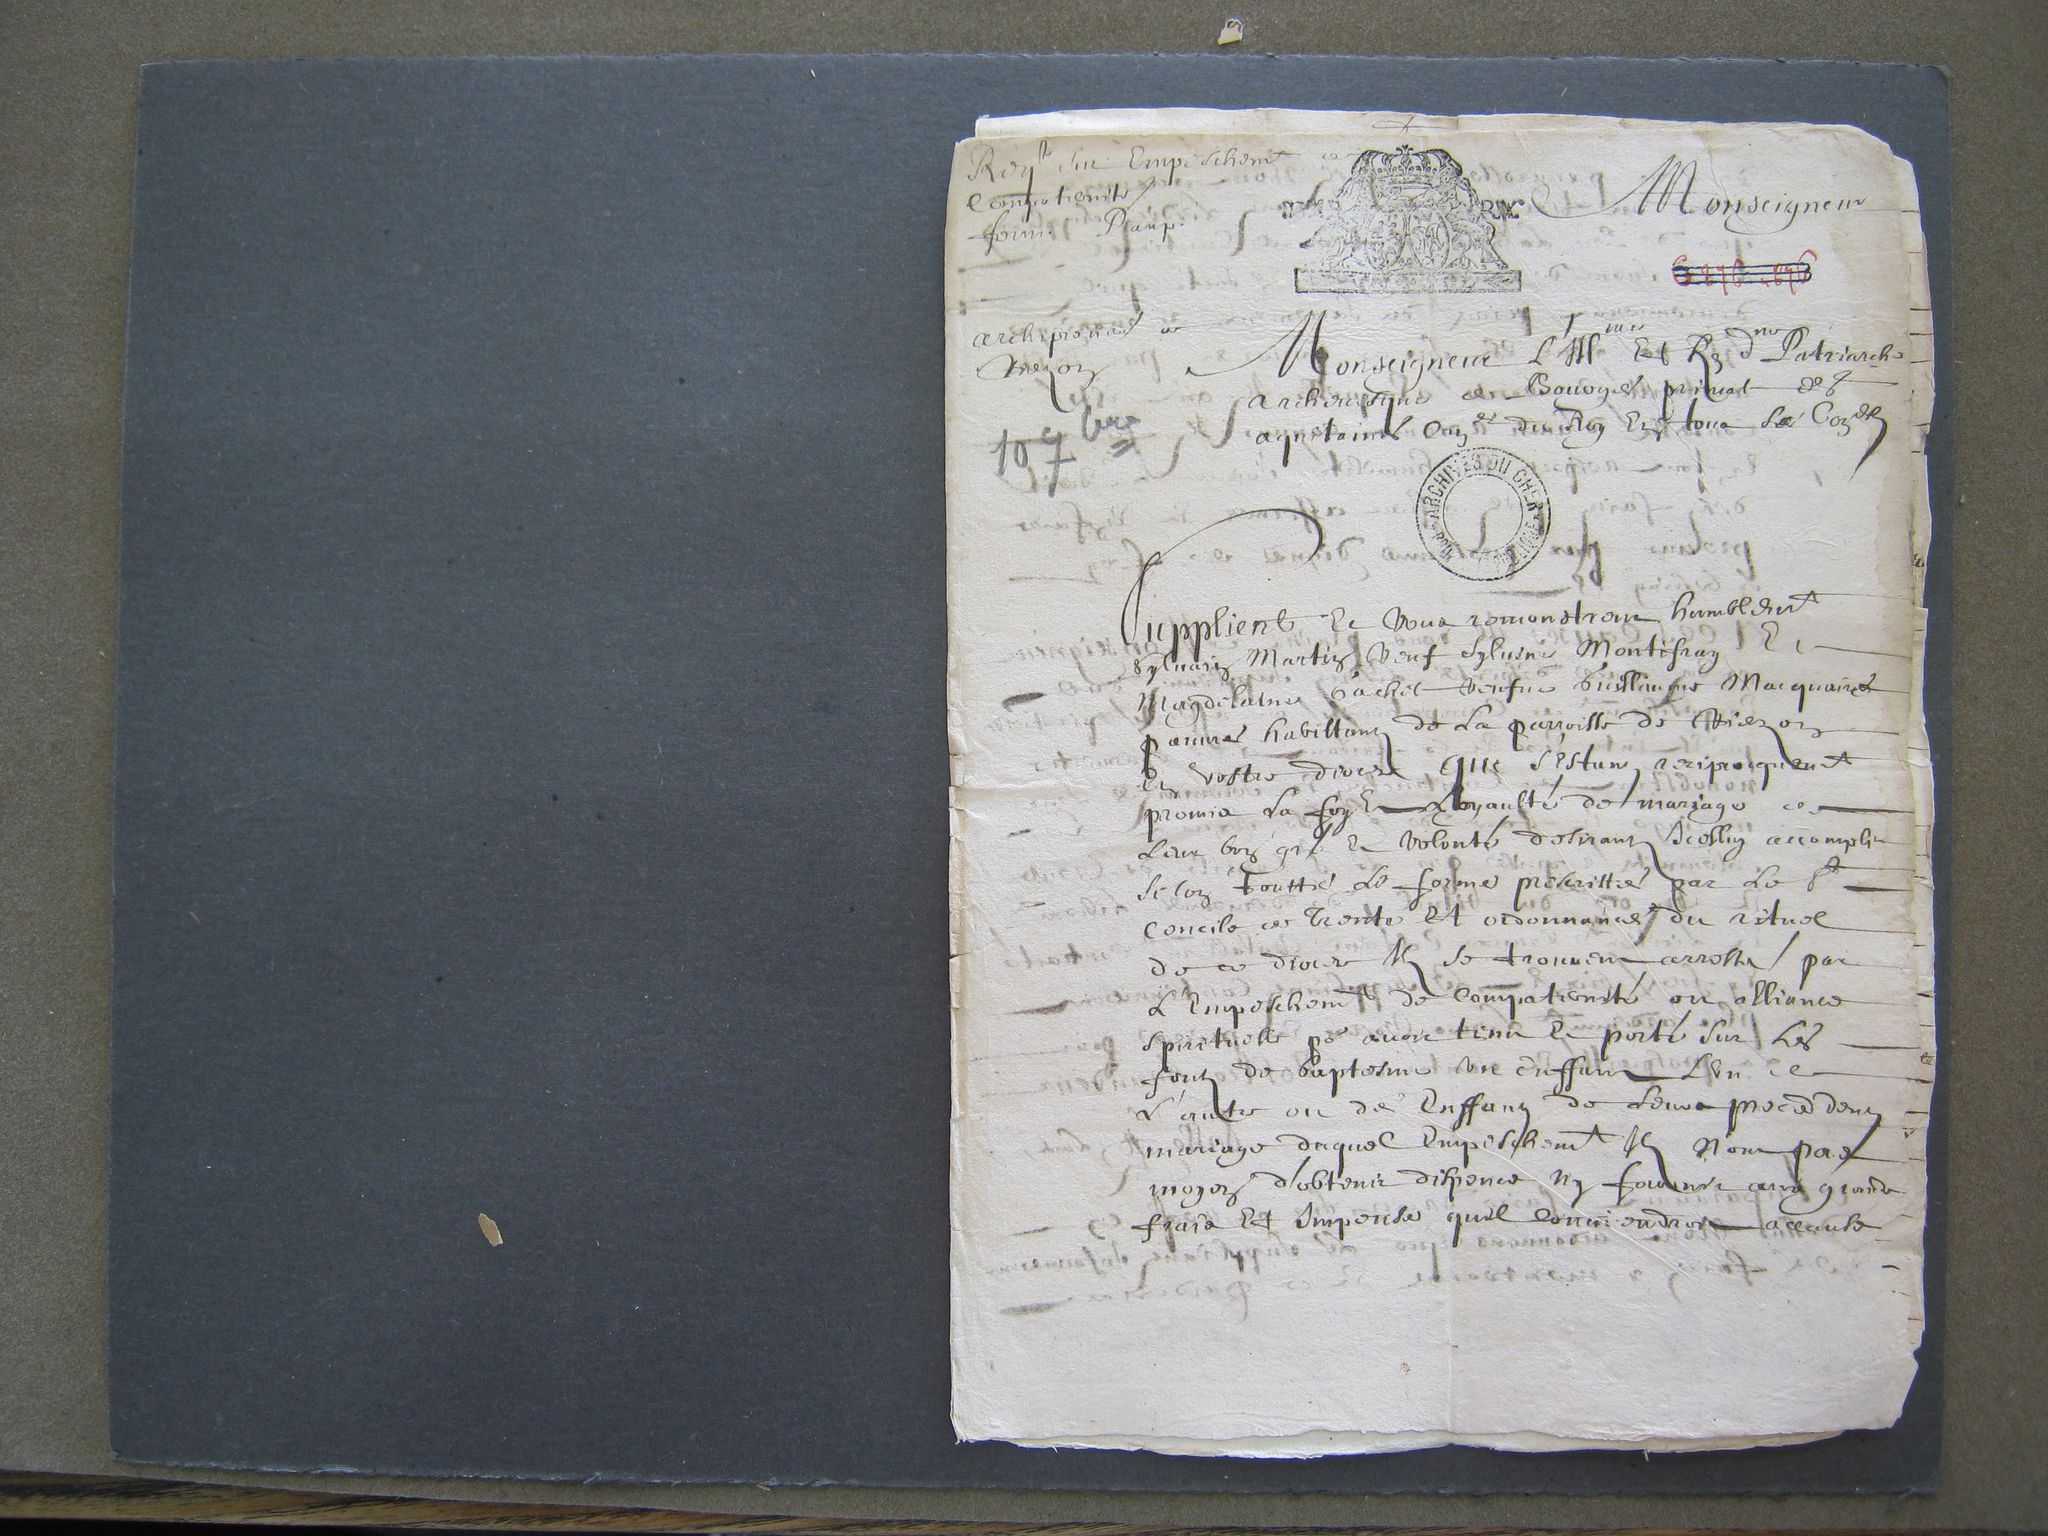 Reqte sur Empeschemt de
Compaternité
form. Paup.
Monseigneur
archiprevré de
Vierzon
10 7bre
Monseigneur L'Illme Et Rdme Patriarche
archevesque de Bourges primat des
aquitaines Coner du Roy En tous Ses Conseils
ARCHIVES DU CHER
Supplient Et Vous remonstrent humblemt
Sylvain Martin Veuf Sylvine Montefray Et
Magdelaine Gachet Veufve Guillaume Macquaire
pauvres habittans de La parroisse de Vierzon
En Vostre diocese que s'Estans reciproquemt
promis La foy Et Loyaulté de mariage de
Leur bon gré Et Volonté desirans Icelluy accomplir
Selon touttes Les formes prescrittes par Le St
Concile de Trente Et ordonnances du rituel
de ce diocese Ils se trouvent arrestés par
L'Empeschemt de Compaternité ou alliance
Spirituelle pr avoir tenu Et porté Sur Les
fons de baptesme un Enffant L'un de
L'autre ou des Enffans de Leurs precedens
mariage duquel Empeschemt Ils N'ont pas
moyen d'obtenir dispence Ny fournir aux grands
frais Et Impense quil Conviendroit accause